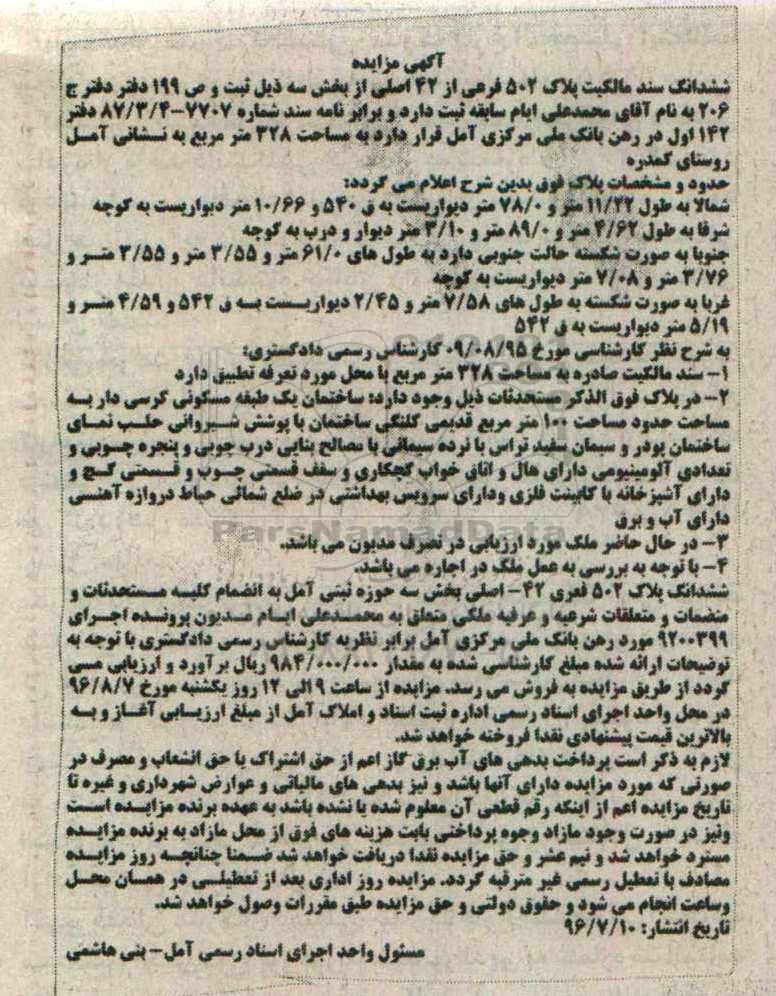 آگهی مزایده
ششدانگ سند مالکیت پلاک ۵۰۲ فرعی از ۴۲ اصلی از بخش سه ذیل ثبت و ص ۱۹۹ دفتر دفتر ج
۲۰۶ به نام آقای محمدعلی ایام سابقه ثبت دارد و برابر نامه سند شماره ۷۷۰۷-۸۷/۳/۴ دفتر
۱۴۲ اول در رهن بانک ملی مرکزی آمل قرار دارد به مساحت ۳۲۸ متر مربع به نشانی آمل
روستای کمدره
حدود و مشخصات پلاک فوق بدین شرح اعلام می گردد:
شمالا به طول ۱۱/۲۲ متر و ۷۸/۰ متر دیواریست به ق ۵۴۰ و ۱۰/۶۶ متر دیواریست به کوچه
شرقا به طول ۴/۶۲ متر و ۸۹/۰ متر و ۳/۱۰ متر دیوار و درب به کوچه
جنوبا به صورت شکسته حالت جنوبی دارد به طول های ۶۱/۰ متر و ۳/۵۵ متر و ۳/۵۵ متر و
۳/۷۶ متر و ۷/۰۸ متر دیواریست به کوچه
غربا به صورت شکسته به طول های ۷/۵۸ متر و ۲/۴۵ دیواریست به ق ۵۴۲ و ۴/۵۹ متر و
۵/۱۹ متر دیواریست به ق ۵۴۲
به شرح نظر کارشناسی مورخ ۰۹/۰۸/۹۵ کارشناس رسمی دادگستری:
۱- سند مالکیت صادره به مساحت ۳۲۸ متر مربع با محل مورد تعرفه تطبیق دارد
۲- در پلاک فوق الذکر مستحدثات ذیل وجود دارد: ساختمان یک طبقه مسکونی کرسی دار به
مساحت حدود مساحت ۱۰۰ متر مربع قدیمی کلنگی ساختمان با پوشش شیروانی حلب نمای
ساختمان پودر و سیمان سفید تراس با نرده سیمانی با مصالح بنایی درب چوبی و پنجره چوبی و
تعدادی آلومینیومی دارای هال و اتاق خواب گچکاری و سقف قسمتی چوب و قسمتی گچ و
دارای آشپزخانه با کابینت فلزی ودارای سرویس بهداشتی در ضلع شمالی حیاط دروازه آهنی
دارای آب و برق
۳- در حال حاضر ملک مورد ارزیابی در تصرف مدیون می باشد.
۴- با توجه به بررسی به عمل ملک در اجاره می باشد.
ششدانگ پلاک ۵۰۲ فعری ۴۲- اصلی بخش سه حوزه ثبتی آمل به انضمام کلیه مستحدثات و
منضمات و متعلقات شرعیه و عرفیه ملکی متعلق به محمدعلی ایام مدیون پرونده اجرای
۹۲۰۰۳۹۹ مورد رهن بانک ملی مرکزی آمل برابر نظریه کارشناس رسمی دادگستری با توجه به
توضیحات ارائه شده مبلغ کارشناسی شده به مقدار ۹۸۴/۰۰۰/۰۰۰ ریال بر آورد و ارزیابی می
گردد از طریق مزایده به فروش می رسد. مزایده از ساعت ۹ الی ۱۲ روز یکشنبه مورخ ۹۶/۸/۷
در محل واحد اجرای اسناد رسمی اداره ثبت اسناد و املاک آمل از مبلغ ارزیابی آغاز و به
بالاترین قیمت پیشنهادی نقدا فروخته خواهد شد.
لازم به ذکر است پرداخت بدهی های آب برق گاز اعم از حق اشتراک یا حق انشعاب و مصرف در
صورتی که مورد مزایده دارای آنها باشد و نیز بدهی های مالیاتی و عوارض شهرداری و غیره تا
تاریخ مزایده اعم از اینکه رقم قطعی آن معلوم شده یا نشده باشد به عهده برنده مزایده است
ونیز در صورت وجود مازاد وجوه پرداختی بابت هزینه های فوق از محل مازاد به برنده مزایده
مسترد خواهد شد و نیم عشر و حق مزایده نقدا دریافت خواهد شد ضمنا چنانچه روز مزایده
مصادف با تعطیل رسمی غیر مترقبه گردد. مزایده روز اداری بعد از تعطیلی در همان محل
وساعت انجام می شود و حقوق دولتی و حق مزایده طبق مقررات وصول خواهد شد.
تاریخ انتشار: ۹۶/۷/۱۰
مسئول واحد اجرای اسناد رسمی آمل- بنی هاشمی
ParsNamadData